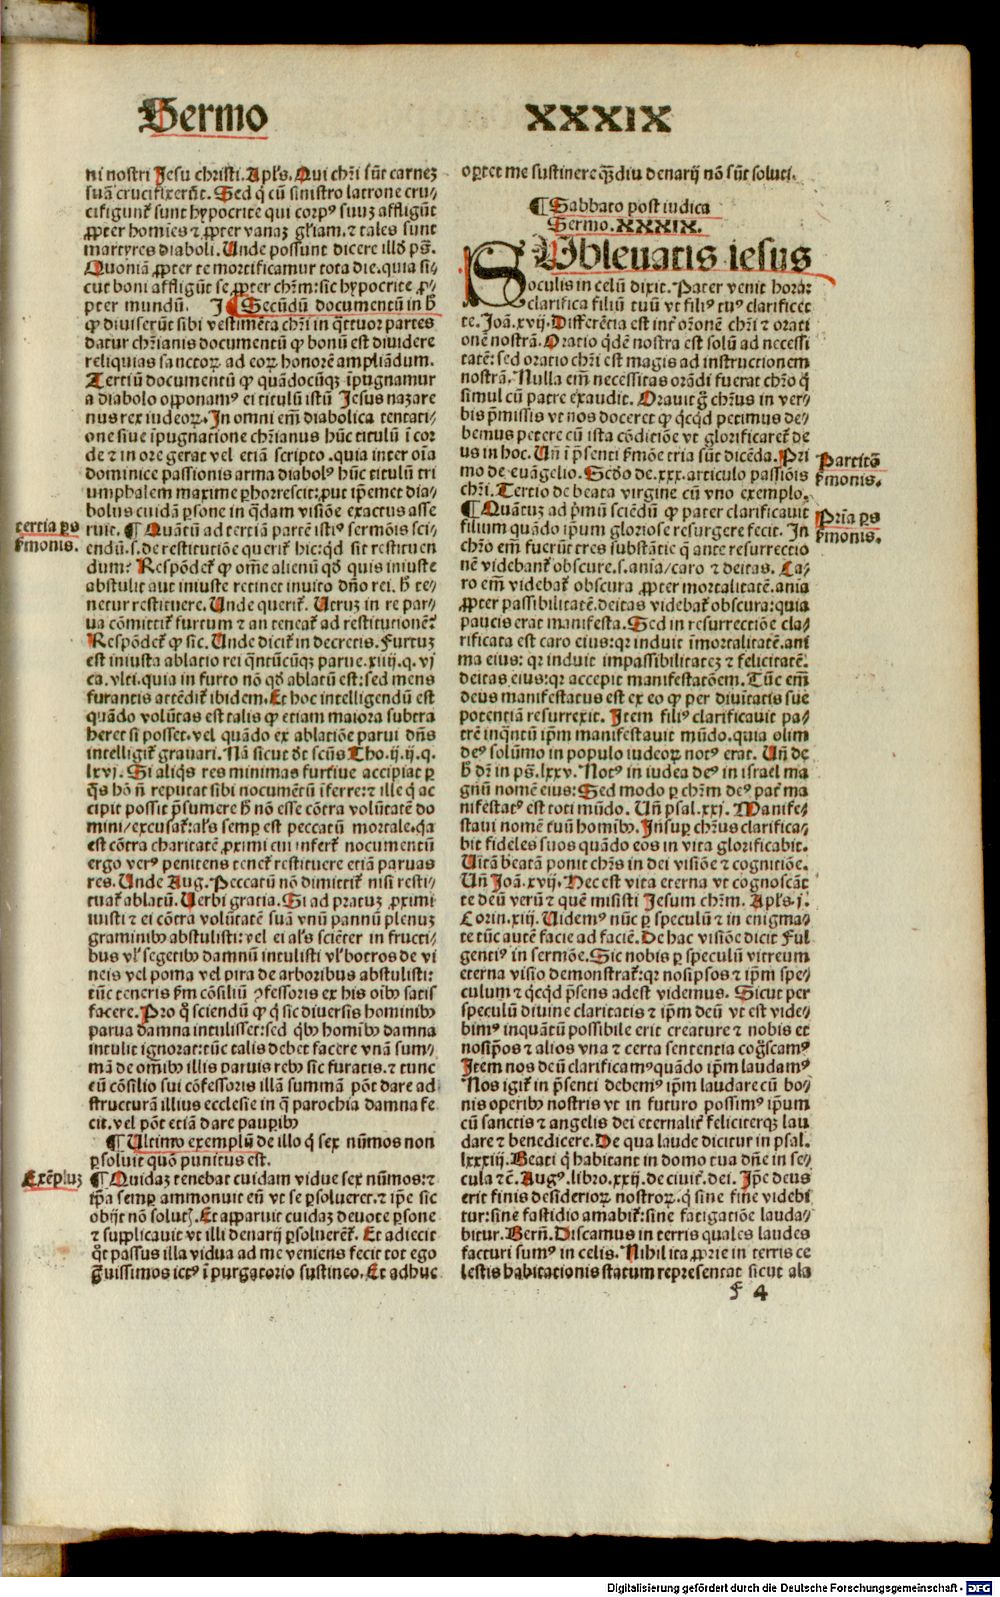 Sermo XXXIX
ni nostri Jesu christi. Apl's. Qui chr̄i sūt carneȝ
suā crucifixerūt. Sed q̇ cū sinistro latrone cru⸗
cifigunt᷑ sunt hypocrite qui corpꝰ suuȝ affligūt
ꝓpter homīes ⁊ ꝓpter vanaȝ gl'iam. ⁊ tales sunt
martyres diaboli. Unde possunt dicere illđ pṡ.
Quoniā ꝓpter te mortificamur tota die. quia si⸗
cut boni affligūt se ꝓpter chr̄m: sic hypocrite ꝓ⸗
pter mundū. J ¶ Secūdū documentū in h̄
ꝙ diviserūt sibi vestimēta chr̄i in q̄ttuor partes
datur chr̄ianis documentū ꝙ bonū est dividere
reliquias sanctoꝝ ad eoꝝ honorē ampliādum.
Tertiū documentū ꝙ quādocūqȝ īpugnamur
a diabolo opponamꝰ ei titulū istū Jesus nazare
nus rex iudeoꝝ. In omni em̄ diabolica tentati⸗
one siue īpugnatione chr̄ianus hūc titulū ī cor
de ⁊ in ore gerat vel etiā scripto. quia inter oīa
dominice passionis arma diabolꝰ hūc titulū tri
umphalem maxime ꝑhorrescit: ꝓut ip̄emet dia⸗
bolus cuidā ꝑsone in q̄dam visiōe exactus asse
ruit. ¶ Quātū ad tertiā partē istiꝰ sermōis sci⸗
endū. s. de restitutiōe querit᷑ hic: qđ sit restituen
dum? Respōdet᷑ ꝙ om̄e alienū qđ quis iniuste
abstulit aut iniuste retinet inuito dn̄o rei. h̄ te⸗
netur restituere. Unde querit᷑. Utruȝ in re par⸗
ua cōmittit᷑ furtum ⁊ an teneat᷑ ad restitutionē?
Respōdet᷑ ꝙ sic. Unde dicit᷑ in decretis. Furtuȝ
est iniusta ablatio rei q̄ntūcūqȝ parue. xiiij. q. vj
ca. vlti. quia in furto nō qđ ablatū est: sed mens
furantis attēdit᷑ ibidem. Et hoc intelligendū est
quādo volūtas est talis ꝙ etiam maiora subtra
heret si posset. vel quādo ex ablatiōe parui dn̄s
intelligit᷑ grauari. Nā sicut dt̄ scūs Tho. ij. ij. q.
lxvj. Si aliq̇s res minimas furtiue accipiat ꝑ
q̄s hō n̄ reputat sibi nocumētū īferre: ⁊ ille q̇ ac
cipit possit p̄sumere h̄ nō esse cōtra volūtatē do
mini/excusat᷑: al's semꝑ est peccatū mortale. q̇a
est cōtra charitatē ꝓximi cui infert᷑ nocumentū
ergo verꝰ penitens tenet᷑ restituere etiā paruas
res. Unde Aug. Peccatū nō dimittit᷑ nisi resti⸗
tuat᷑ ablatū. Verbi gratia. Si ad pratuȝ ꝓximi
iuisti ⁊ ei cōtra volūtatē suā vnū pannū plenuȝ
graminibꝰ abstulisti: vel ei al's sciēter in fructi⸗
bus vl' segetibꝰ damnū intulisti vl' botros de vi
neis vel poma vel pira de arboribus abstulisti:
tūc teneris ẜm cōsiliū ꝯfessoris ex his oībꝰ satis
facere. Pro q̊ sciendū ꝙ q̇ sic diversis hominibꝰ
parua damna intulisset: sed q̇bꝰ homībꝰ damna
intulit ignorat: tūc talis debet facere vnā sum⸗
mā de om̄ibꝰ illis paruis rebꝰ sic furatis. ⁊ tunc
cū cōsilio sui cōfessoris illā summā pōt dare ad
structurā illius ecclesie in q̄ parochia damna fe
cit. vel pōt etiā dare pauꝑibꝰ
¶ Ultimo exemplū de illo q̇ sex nūmos non
ꝑsoluit quō punitus est.
¶ Quidaȝ tenebat cuidam vidue sex nūmos: ⁊
ip̄a semꝑ ammonuit eū vt se ꝑsolueret. ⁊ ip̄e sic
obijt nō solutꝭ. Et apparuit cuidaȝ deuote ꝑsone
⁊ supplicauit vt illi denarij ꝑsoluerēt᷑. Et adiecit
q̇t passus illa vidua ad me veniens fecit tot ego
g̃uissimos ictꝰ ī purgatorio sustineo. Et adhuc
tertia ꝑs
ẜmonis.
Exēpluȝ
oꝑtet me sustinere q̄ȝdiu denarij nō sūt soluti.
¶ Sabbato post iudica
Sermo. XXXIX.
SUbleuatis iesus
oculis in celū dixit. Pater venit hora:
clarifica filiū tuū vt filiꝰ tuꝰ clarificet
te. Joā. xvij. Differētia est int᷑ or̄onē chr̄i ⁊ orati
onē nostrā. Oratio q̇dē nostra est solū ad necessi
tatē: sed oratio chr̄i est magis ad instructionem
nostrā. Nulla em̄ necessitas orādi fuerat chr̄o q̇
simul cū patre exaudit. Orauit g̊ chr̄us in ver⸗
bis p̄missis vt nos doceret ꝙ q̇cq̇d petimus de⸗
bemus petere cū ista cōditiōe vt glorificaret᷑ de
us in hoc. Un̄ ī p̄senti ẜmōe tria sūt dicēda. Pri
mo de euāgelio. Scđo de. xxx. articulo passiōis
chr̄i. Tertio de beata virgine cū vno exemplo.
¶ Quātuȝ ad p̄mū sciēdū ꝙ pater clarificauit
filium quādo ip̄um gloriose resurgere fecit. In
chr̄o em̄ fuerūt tres substātie q̄ ante resurrectio
nē videbant᷑ obscure. s. aīa/caro ⁊ deitas. Ca⸗
ro em̄ videbat᷑ obscura ꝓpter mortalitatē. aīa
ꝓpter passibilitatē. deitas videbat᷑ obscura: quia
paucis erat manifesta. Sed in resurrectiōe cla⸗
rificata est caro eius: qꝛ induit īmortalitatē. ani
ma eius: qꝛ induit impassibilitateȝ ⁊ felicitatē.
deitas eius: qꝛ accepit manifestatōem. Tūc em̄
deus manifestatus est ex eo ꝙ per diuītatis sue
potentiā resurrexit. Item filiꝰ clarificauit pa⸗
trē inq̄ntū ip̄m manifestauit mūdo. quia olim
deꝰ solūmo in populo iudeoꝝ notꝰ erat. Un̄ de
h̄ dr̄ in pṡ. lxxv. Notꝰ in iudea deꝰ in israel ma
gnū nomē eius: Sed modo ꝑ chr̄m deꝰ pat᷑ ma
nifestatꝰ est toti mūdo. Un̄ psal. xxj. Manife⸗
staui nomē tuū homībꝰ. Insuꝑ chr̄us clarifica⸗
bit fideles suos quādo eos in vita glorificabit.
Uitā beatā ponit chr̄s in dei visiōe ⁊ cognitiōe.
Un̄ Joā. xvij. Hec est vita eterna vt cognoscāt
te deū verū ⁊ quē misisti Jesum chr̄m. Apl's. j.
Corin. xiij. Uidemꝰ nūc ꝑ speculū ⁊ in enigma⸗
te tūc autē facie ad faciē. De hac visiōe dicit Ful
gentiꝰ in sermōe. Sic nobis ꝑ speculū vitreum
eterna visio demonstrat᷑: qꝛ nosip̄sos ⁊ ip̄m spe⸗
culum ⁊ q̇cq̇d p̄sens adest videmus. Sicut per
speculū diuine claritatis ⁊ ip̄m deū vt est vide⸗
bimꝰ inquātū possibile erit creature ⁊ nobis et
nosip̄os ⁊ alios vna ⁊ certa sententia cog̊scamꝰ
Item nos deū clarificamꝰ quādo ip̄m laudamꝰ
Nos igit᷑ in p̄senti debemꝰ ip̄m laudare cū bo⸗
nis operibꝰ nostris vt in futuro possimꝰ ip̄um
cū sanctis ⁊ angelis dei eternalit᷑ feliciterqȝ lau
dare ⁊ benedicere. De qua laude dicitur in psal.
lxxxiij. Beati q̇ habitant in domo tua dn̄e in se⸗
cula ⁊c̄. Augꝰ. libro. xxij. de ciuit᷑. dei. Ip̄e deus
erit finis desiderioꝝ nostroꝝ. q̇ sine fine videbi
tur: sine fastidio amabit᷑: sine fatigatiōe lauda⸗
bitur. Bern̄. Discamus in terris quales laudes
facturi sumꝰ in celis. Nihil ita ꝓprie in terris ce
lestis habitationis statum representat sicut ala
Partitō
ẜmonis.
Pri̅a ꝑs
ẜmonis.
f 4
Digitalisierung gefördert durch die Deutsche Forschungsgemeinschaft - DFG